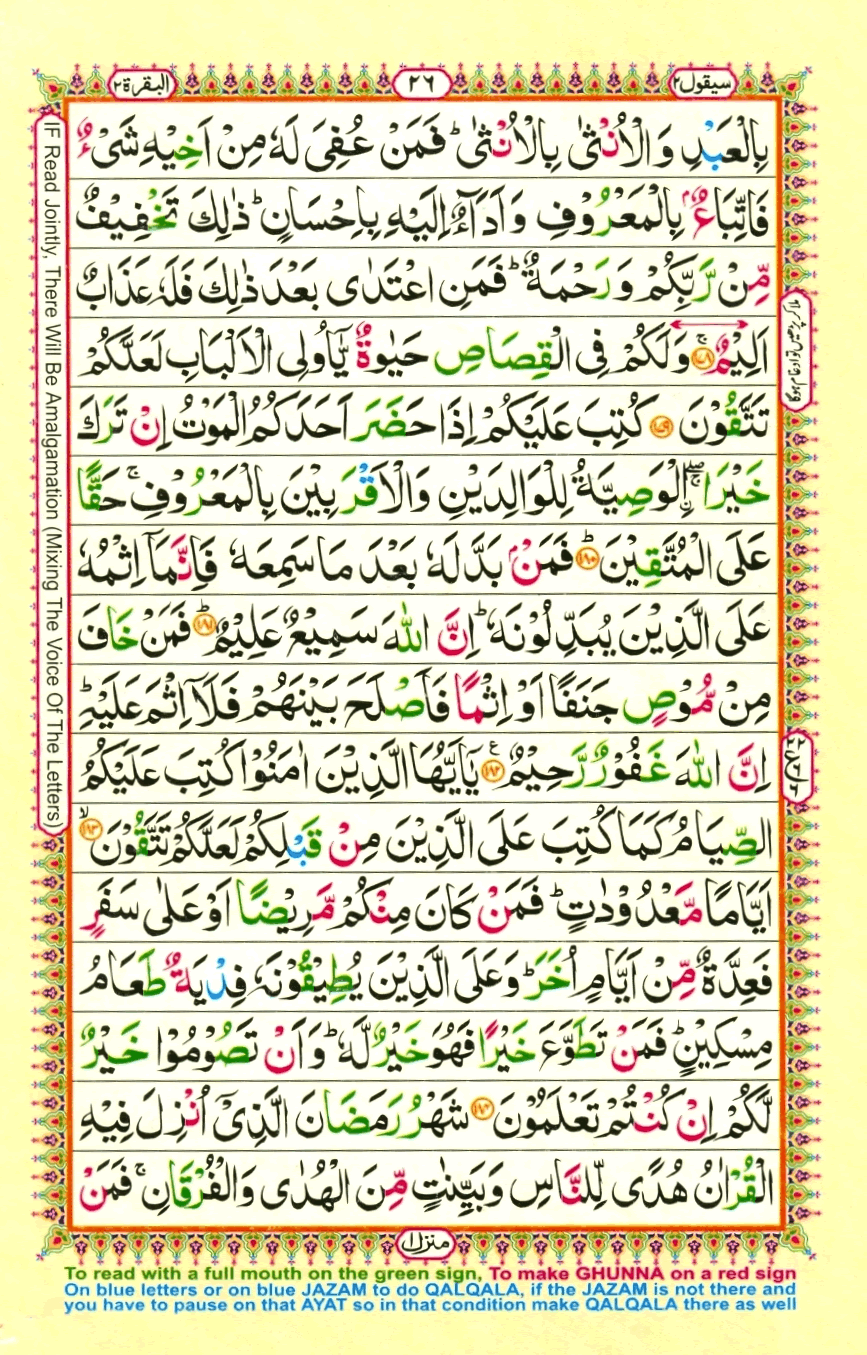 سیقول ۲
۲۶
البقرة ۲
بِالْعَبْدِ وَالْاُنْثٰى بِالْاُنْثٰىؕ فَمَنْ عُفِىَ لَهٗ مِنْ اَخِيْهِ شَىْءٌ
فَاتِّبَاعٌۢ بِالْمَعْرُوْفِ وَاَدَآءٌ اِلَيْهِ بِاِحْسَانٍؕ ذٰلِكَ تَخْفِيْفٌ
مِّنْ رَّبِّكُمْ وَرَحْمَةٌؕ فَمَنِ اعْتَدٰى بَعْدَ ذٰلِكَ فَلَهٗ عَذَابٌ
اَلِيْمٌۚ ﴿۱۷۸﴾ وَلَكُمْ فِى الْقِصَاصِ حَيٰوةٌ يّٰٓاُولِى الْاَلْبَابِ لَعَلَّكُمْ
تَتَّقُوْنَ ﴿۱۷۹﴾ كُتِبَ عَلَيْكُمْ اِذَا حَضَرَ اَحَدَكُمُ الْمَوْتُ اِنْ تَرَكَ
خَيْرَاۖۚ اۨلْوَصِيَّةُ لِلْوَالِدَيْنِ وَالْاَقْرَبِيْنَ بِالْمَعْرُوْفِۚ حَقًّا
عَلَى الْمُتَّقِيْنَؕ ﴿۱۸۰﴾ فَمَنْۢ بَدَّلَهٗ بَعْدَ مَا سَمِعَهٗ فَاِنَّمَاۤ اِثْمُهٗ
عَلَى الَّذِيْنَ يُبَدِّلُوْنَهٗؕ اِنَّ اللّٰهَ سَمِيْعٌ عَلِيْمٌؕ ﴿۱۸۱﴾ فَمَنْ خَافَ
مِنْ مُّوْصٍ جَنَفًا اَوْ اِثْمًا فَاَصْلَحَ بَيْنَهُمْ فَلَاۤ اِثْمَ عَلَيْهِؕ
اِنَّ اللّٰهَ غَفُوْرٌ رَّحِيْمٌ ﴿۱۸۲﴾ يٰٓاَيُّهَا الَّذِيْنَ اٰمَنُوْا كُتِبَ عَلَيْكُمُ
الصِّيَامُ كَمَا كُتِبَ عَلَى الَّذِيْنَ مِنْ قَبْلِكُمْ لَعَلَّكُمْ تَتَّقُوْنَۙ ﴿۱۸۳﴾
اَيَّامًا مَّعْدُوْدٰتٍؕ فَمَنْ كَانَ مِنْكُمْ مَّرِيْضًا اَوْ عَلٰى سَفَرٍ
فَعِدَّةٌ مِّنْ اَيَّامٍ اُخَرَؕ وَعَلَى الَّذِيْنَ يُطِيْقُوْنَهٗ فِدْيَةٌ طَعَامُ
مِسْكِيْنٍؕ فَمَنْ تَطَوَّعَ خَيْرًا فَهُوَ خَيْرٌ لَّهٗؕ وَاَنْ تَصُوْمُوْا خَيْرٌ
لَّكُمْ اِنْ كُنْتُمْ تَعْلَمُوْنَ ﴿۱۸۴﴾ شَهْرُ رَمَضَانَ الَّذِىْۤ اُنْزِلَ فِيْهِ
الْقُرْاٰنُ هُدًى لِّلنَّاسِ وَبَيِّنٰتٍ مِّنَ الْهُدٰى وَالْفُرْقَانِۚ فَمَنْ
منزل ۱
IF Read Jointly, There Will Be Amalgamation (Mixing The Voice Of The Letters)
To read with a full mouth on the green sign, To make GHUNNA on a red sign
On blue letters or on blue JAZAM to do QALQALA, if the JAZAM is not there and
you have to pause on that AYAT so in that condition make QALQALA there as well